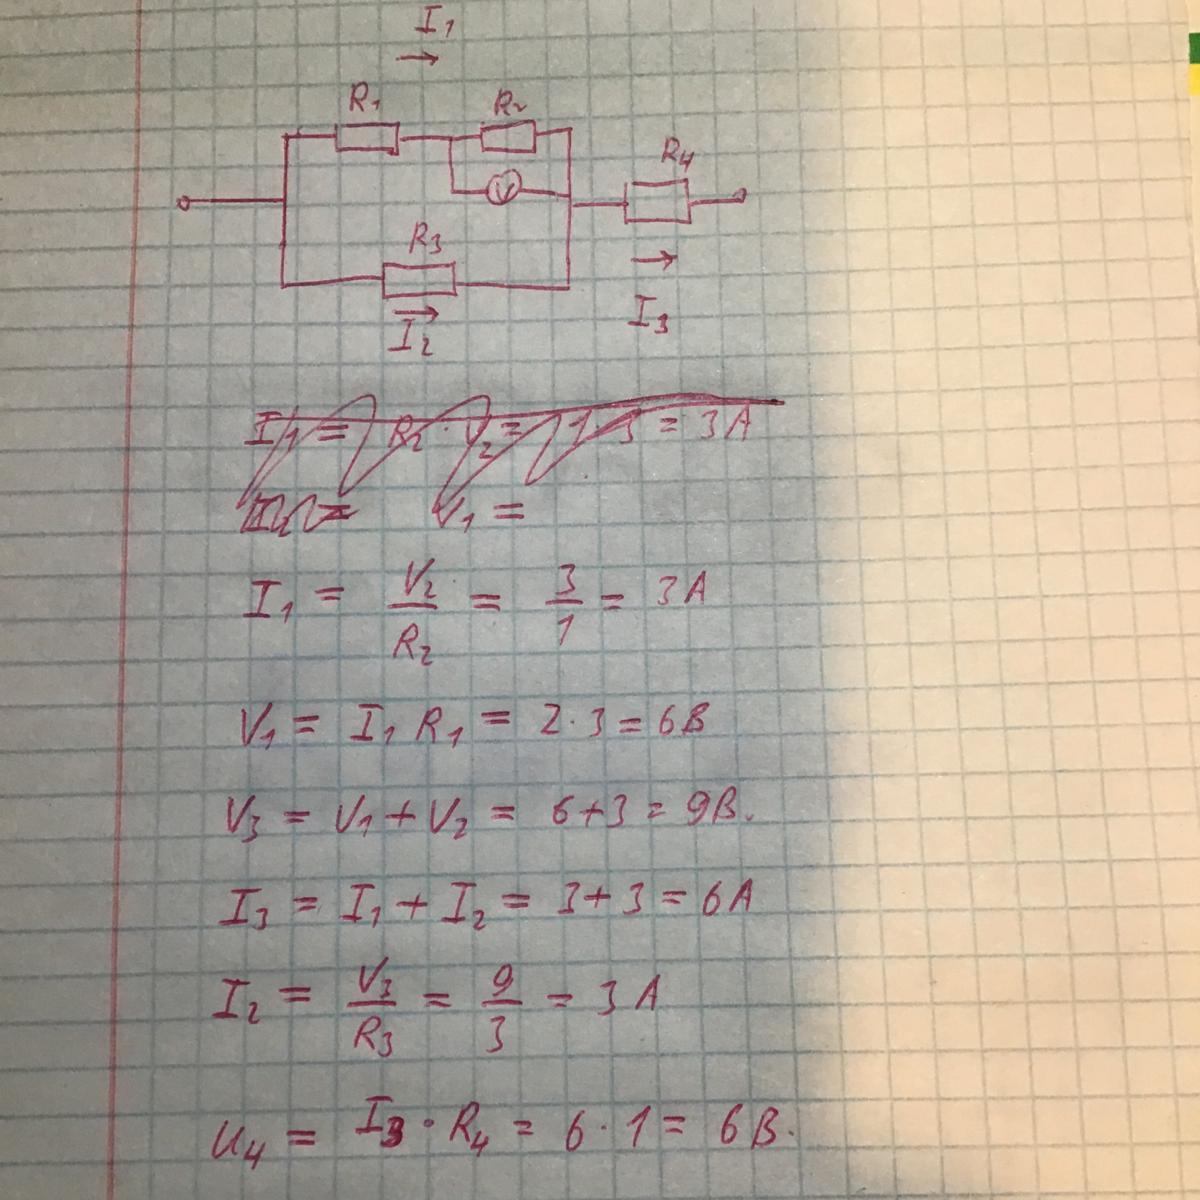 I₁
R₁ R₂
V
R₄
R₃
I₂
I₃
I₁ = R₂ · V₂ = 1 · 3 = 3A
V₁ =
I₁ = V₂/R₂ = 3/1 = 3A
V₁ = I₁ R₁ = 2·3 = 6В
V₃ = V₁ + V₂ = 6+3 = 9В.
I₃ = I₁ + I₂ = 3+3 = 6A
I₂ = V₃/R₃ = 9/3 = 3A
U₄ = I₃ · R₄ = 6·1 = 6В.